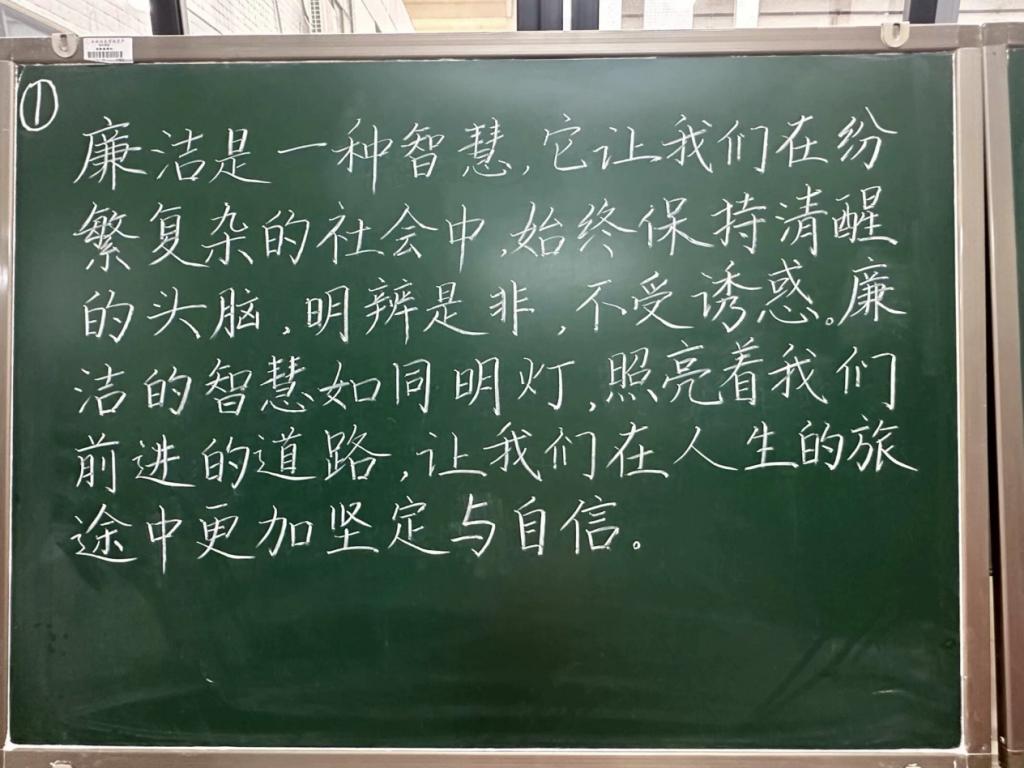 ①
廉洁是一种智慧,它让我们在纷
繁复杂的社会中,始终保持清醒
的头脑,明辨是非,不受诱惑。廉
洁的智慧如同明灯,照亮着我们
前进的道路,让我们在人生的旅
途中更加坚定与自信。